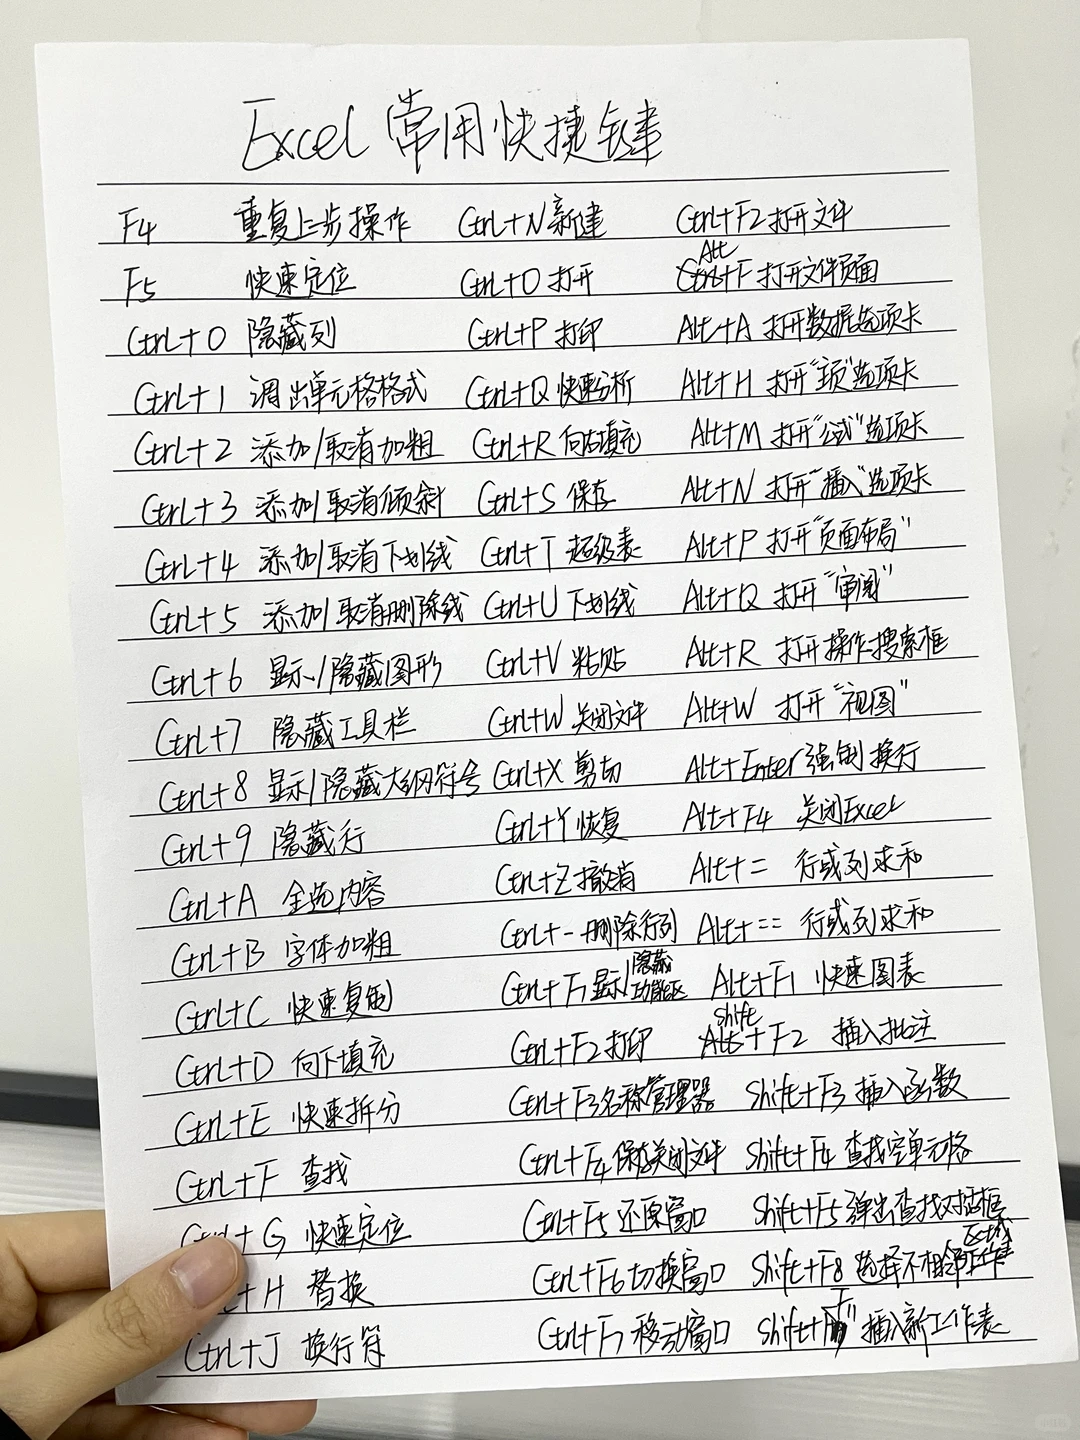 Excel 常用快捷键
F4 重复上步操作 Ctrl+N 新建 Ctrl+F2 打开文件
F5 快速定位 Ctrl+O 打开 Alt+F 打开文件页面
Ctrl+0 隐藏列 Ctrl+P 打印 Alt+A 打开数据选项卡
Ctrl+1 调出单元格格式 Ctrl+Q 快速分析 Alt+H 打开"主页"选项卡
Ctrl+2 添加/取消加粗 Ctrl+R 向右填充 Alt+M 打开"公式"选项卡
Ctrl+3 添加/取消倾斜 Ctrl+S 保存 Alt+N 打开"插入"选项卡
Ctrl+4 添加/取消下划线 Ctrl+T 超级表 Alt+P 打开"页面布局"
Ctrl+5 添加/取消删除线 Ctrl+U 下划线 Alt+Q 打开"审阅"
Ctrl+6 显示/隐藏图形 Ctrl+V 粘贴 Alt+R 打开操作搜索框
Ctrl+7 隐藏工具栏 Ctrl+W 关闭文件 Alt+W 打开"视图"
Ctrl+8 显示/隐藏大纲符号 Ctrl+X 剪切 Alt+Enter 强制换行
Ctrl+9 隐藏行 Ctrl+Y 恢复 Alt+F4 关闭Excel
Ctrl+A 全选内容 Ctrl+Z 撤消 Alt+= 行或列求和
Ctrl+B 字体加粗 Ctrl+- 删除行列 Alt+== 行或列求和
Ctrl+C 快速复制 Ctrl+F1 显示/隐藏功能区 Alt+F1 快速图表
Ctrl+D 向下填充 Ctrl+F2 打印 Shift+F2 插入批注
Ctrl+E 快速拆分 Ctrl+F3 名称管理器 Shift+F3 插入函数
Ctrl+F 查找 Ctrl+F4 保存关闭文件 Shift+F4 查找空单元格
+G 快速定位 Ctrl+F5 还原窗口 Shift+F5 弹出查找对话框
+H 替换 Ctrl+F6 切换窗口 Shift+F8 选择不相邻区域
Ctrl+J 换行符 Ctrl+F7 移动窗口 Shift+F11 插入新工作表